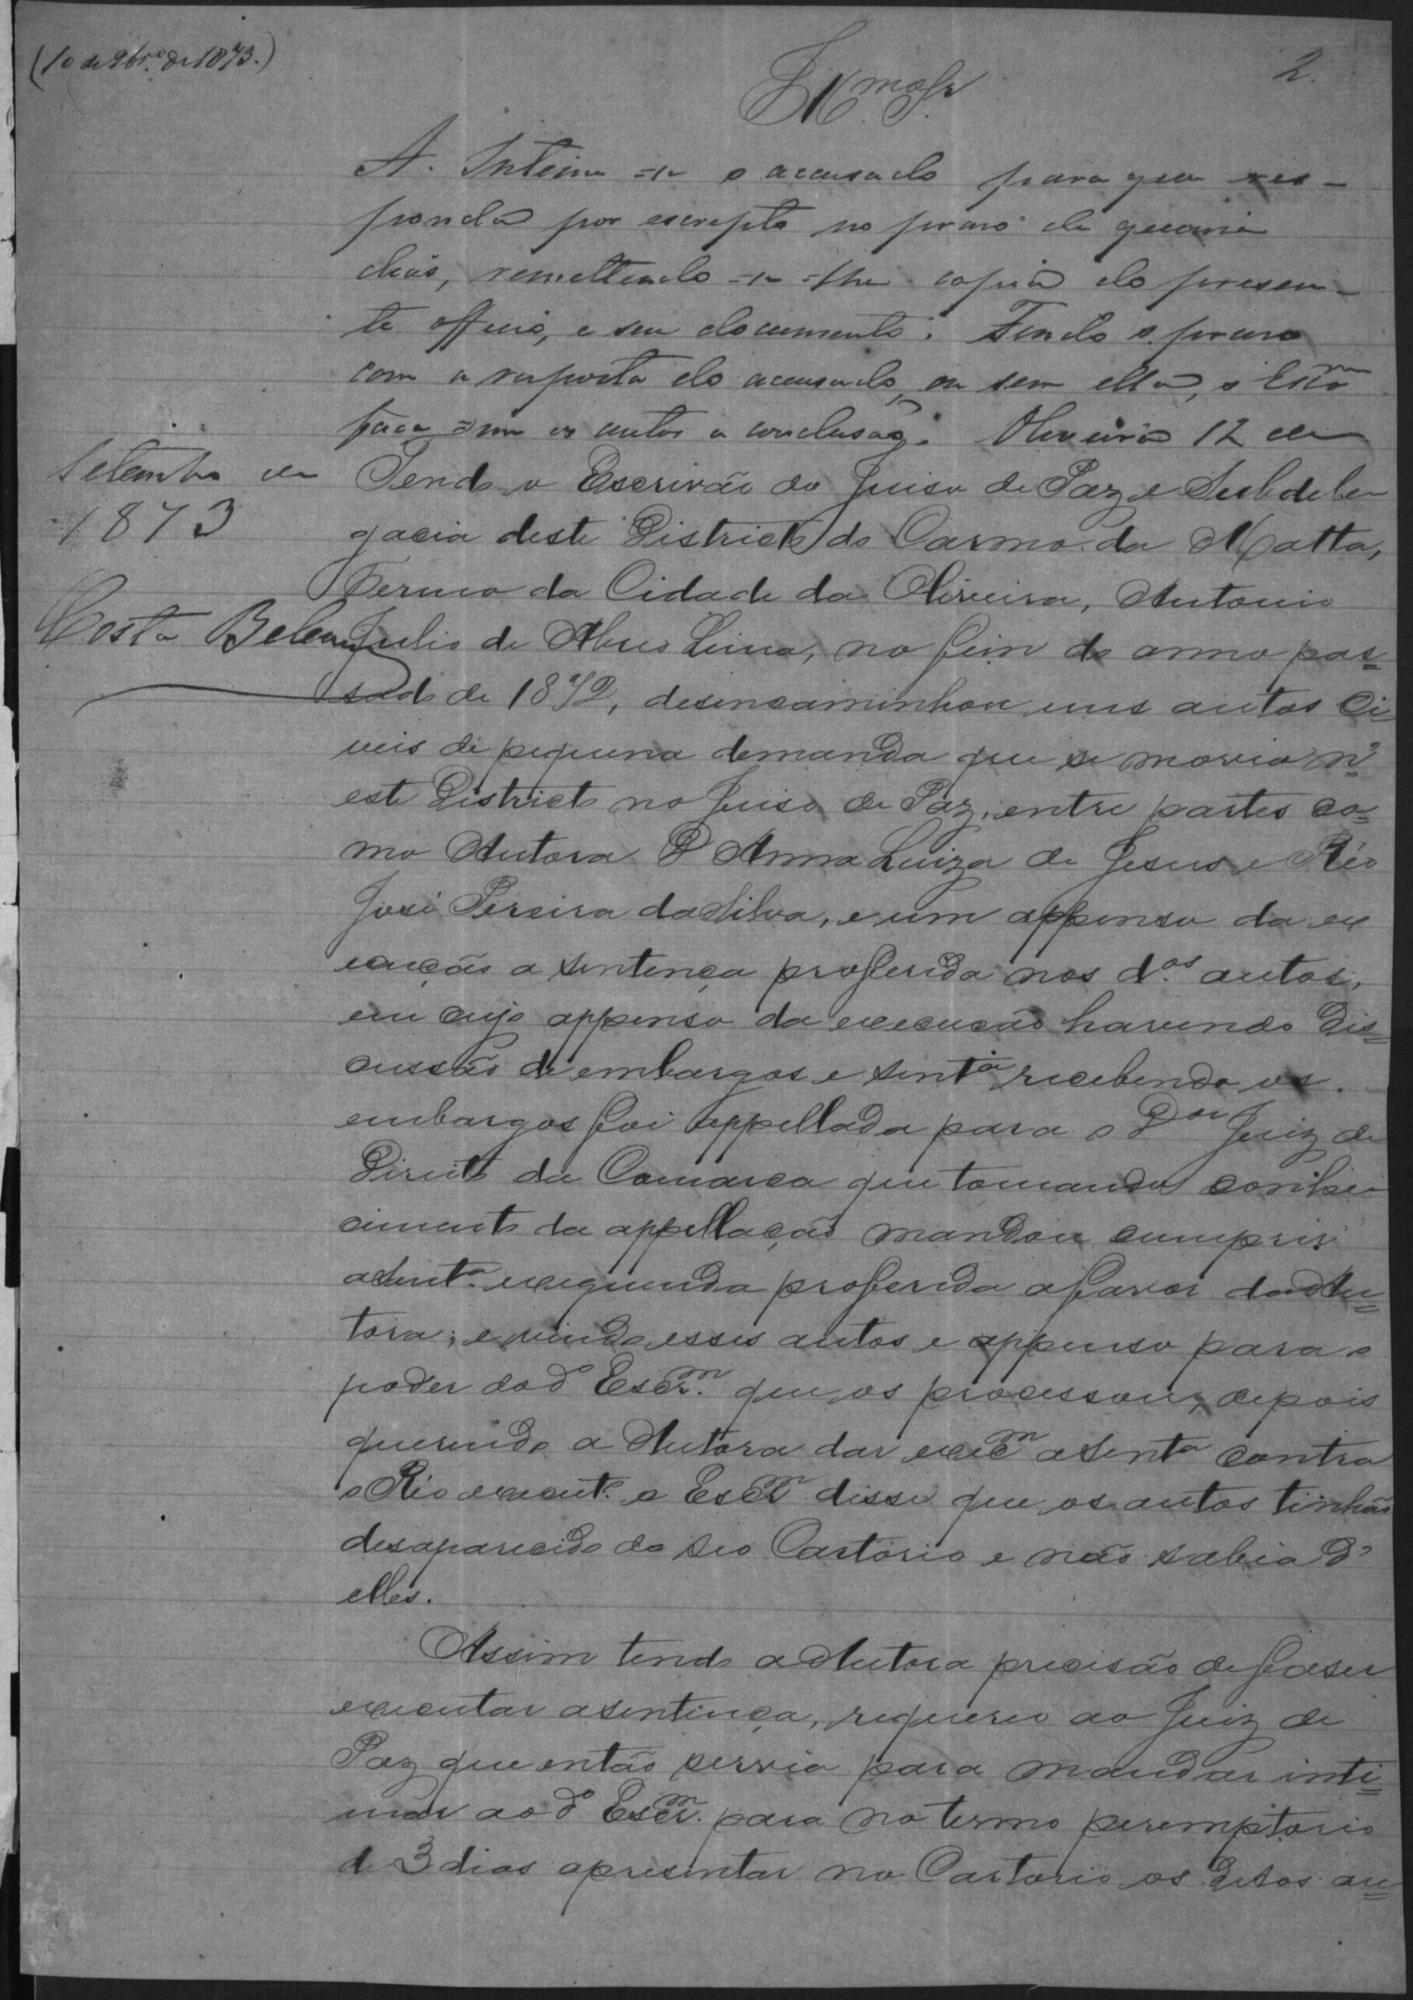 (10 de 9br.º de 1873.)
2.
Illmo Sr.
A. Intime-se o accusado para que res-
ponda por escripto no praso de quinze
dias, remettendo-se-lhe copia do presen-
te officio, e seu documento. Findo o praso
com a resposta do accusado, ou sem ella, o Escam
faça-me os autos a conclusão. Oliveira 12 de
Setembro de
1873
Costa Belem
Sendo o Escrivão do Juiso de Paz e Subdele
gacia deste Districto do Carmo da Matta,
Termo da Cidade da Oliveira, Antonio
Julio de Abreo Lima, no fim do anno pas=
sado de 1872, desencaminhou uns autos Ci
veis de pequena demanda que se movia n'
este Districto no Juiso de Paz, entre partes co=
mo Autora D Anna Luiza de Jesus e Réo
José Pereira da Silva, e um appenso da ex
ecução a sentença proferida nos d.os autos,
em cujo appenso da execução havendo Dis=
cussão de embargos e sentª recebendo os
embargos foi appellada para o Dor Juiz de
Direito da Comarca que tomando conhe
cimento da appellação mandou cumprir
a sentª exequenda proferida a favor da Au=
tora; e vindo esses autos e appenso para o
poder do dº Escr.m que os processou, depois
querendo a Autora dar execm a sentª contra
o Réo execut.º o Escrm disse que os autos tinhão
desaparecido do seo Cartorio e não sabia d'
elles.
Assim tendo a Autora precisão de faser
executar a sentença, requereo ao Juiz de
Paz que então servia para mandar inti=
mar ao dº Escr.m para no termo peremptorio
de 3 dias apresentar no Cartorio os ditos au=